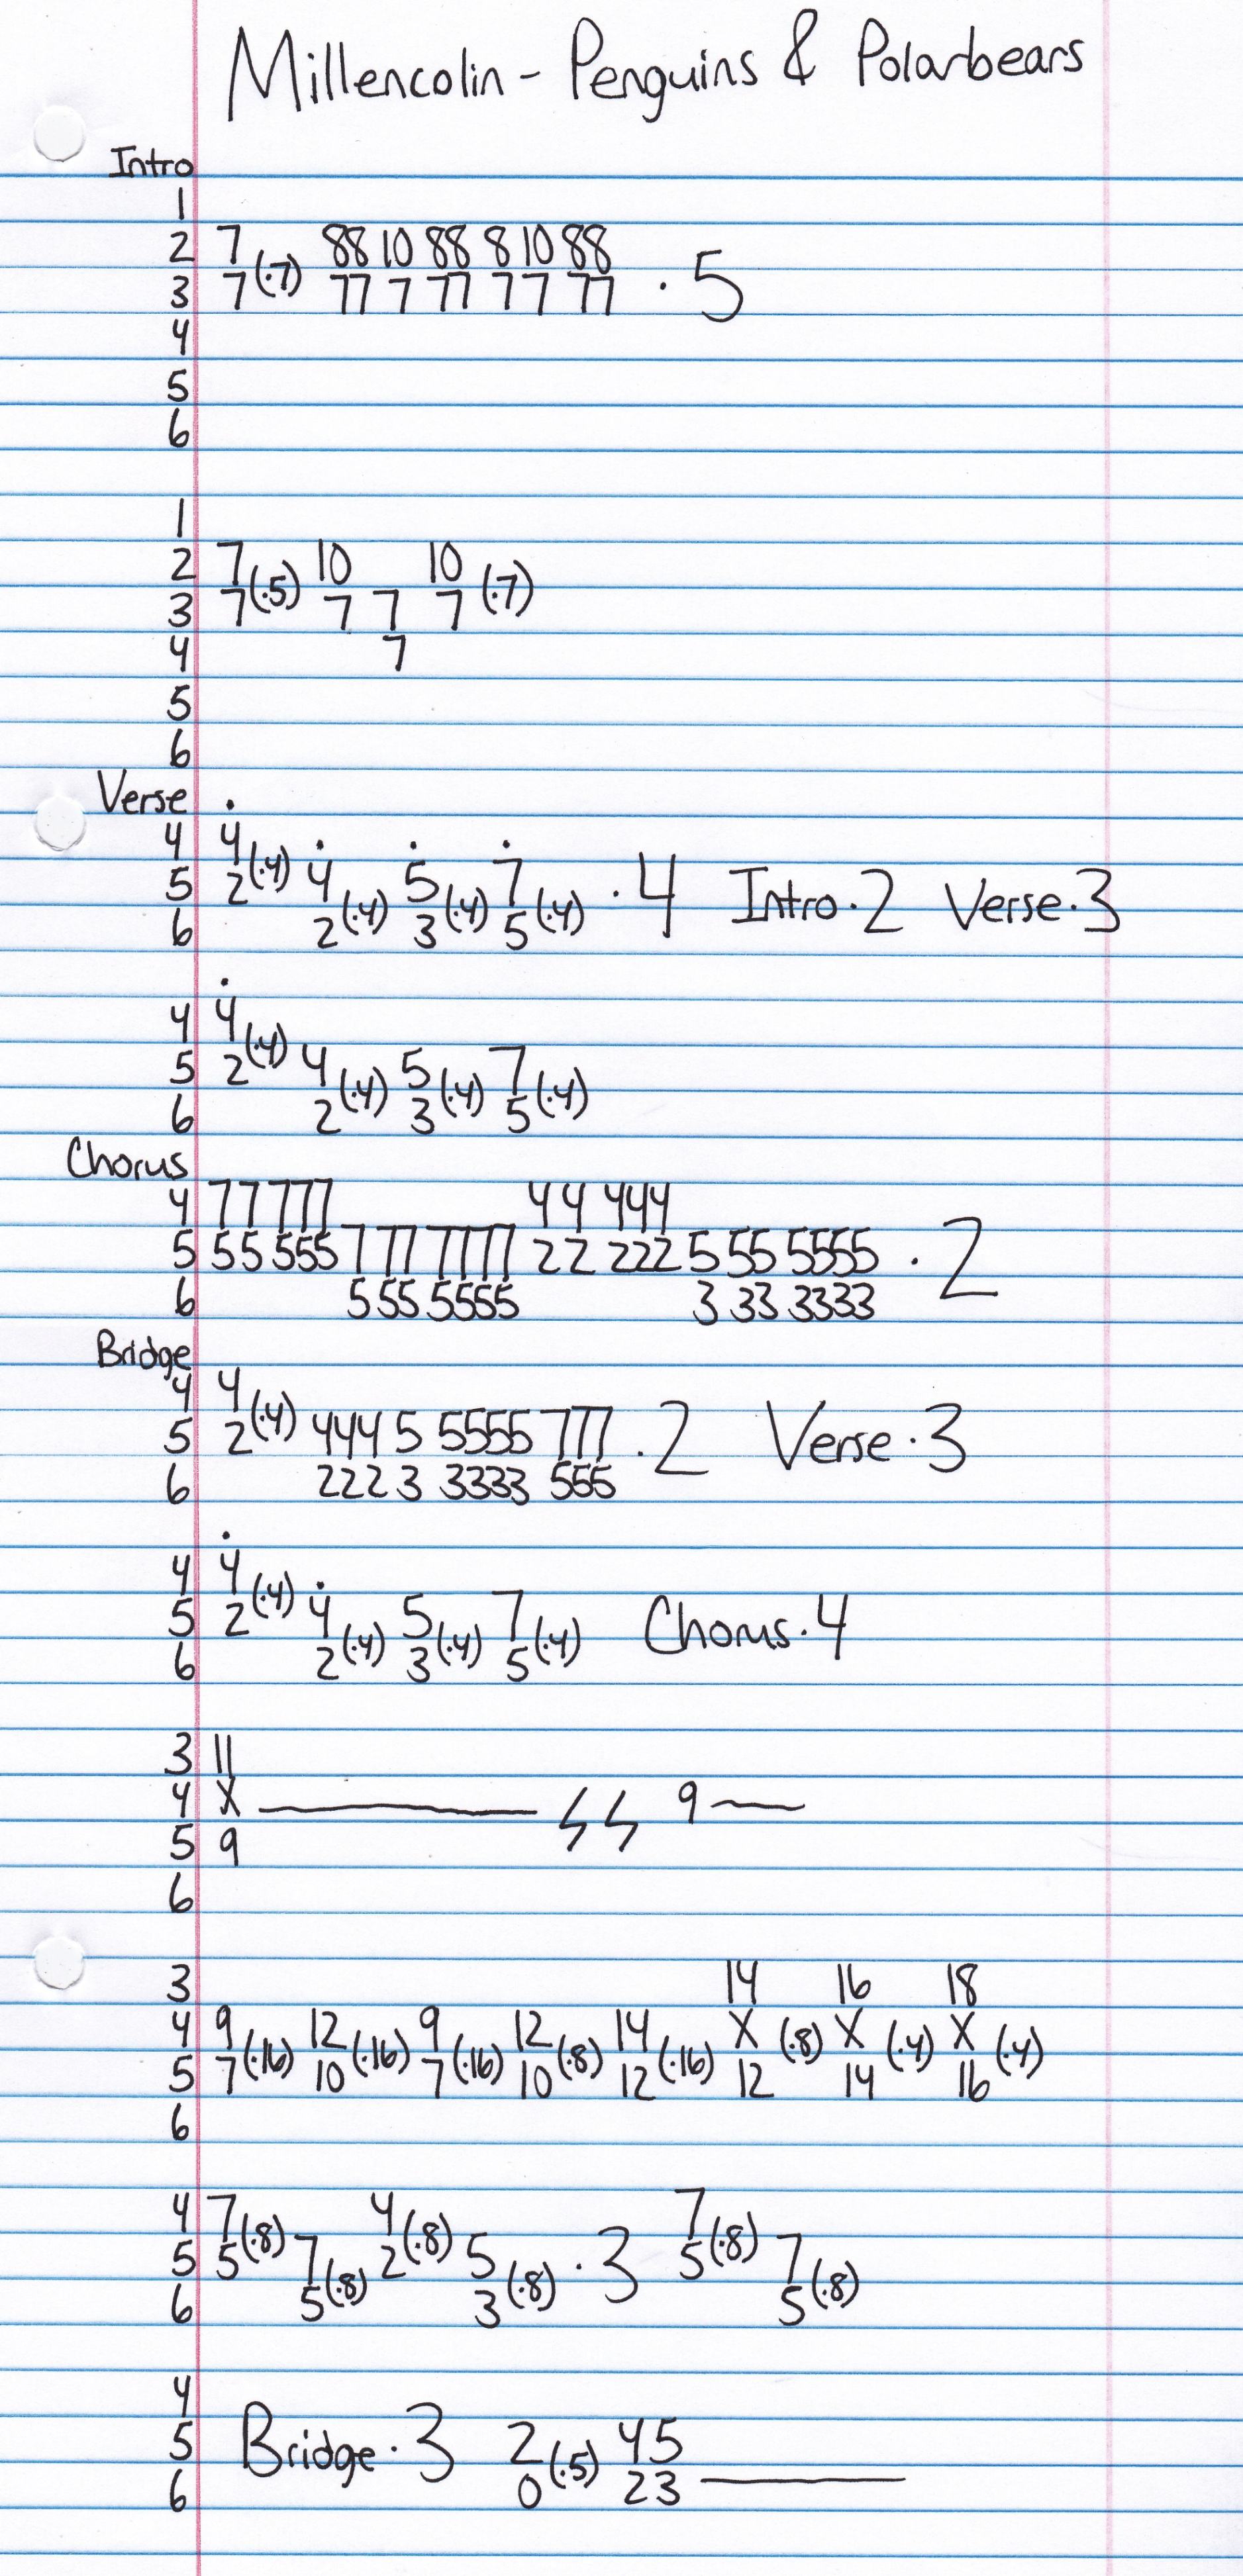 Millencolin - Penguins & Polarbears
Intro
1
2 7 88 10 88 8 10 88
3 7 (·7) 77 7 77 7 7 77 · 5
4
5
6
1
2 7 10 10
3 7 (·5) 7 7 7 (·7)
4 7
5
6
Verse
4 4
5 2 (·4) 4 5 7 · 4 Intro · 2 Verse · 3
6 2 (·4) 3 (·4) 5 (·4)
4 4
5 2 (·4) 4 5 7
6 2 (·4) 3 (·4) 5 (·4)
Chorus
4 77 777 44 444
5 55 555 7 77 7777 22 222 5 55 5555 · 2
6 5 55 5555 3 33 3333
Bridge
4 4
5 2 (·4) 444 5 5555 777 · 2 Verse · 3
6 222 3 3333 555
4 4
5 2 (·4) 4 5 7 Chorus · 4
6 2 (·4) 3 (·4) 5 (·4)
3 11
4 X 9
5 9
6
3 14 16 18
4 9 12 9 12 14 X X X
5 7 (·16) 10 (·16) 7 (·16) 10 (·8) 12 (·16) 12 (·8) 14 (·4) 16 (·4)
6
4 7 4 7
5 5 (·8) 7 2 (·8) 5 · 3 5 (·8) 7
6 5 (·8) 3 (·8) 5 (·8)
4
5 Bridge · 3 2 45
6 0 (·5) 23